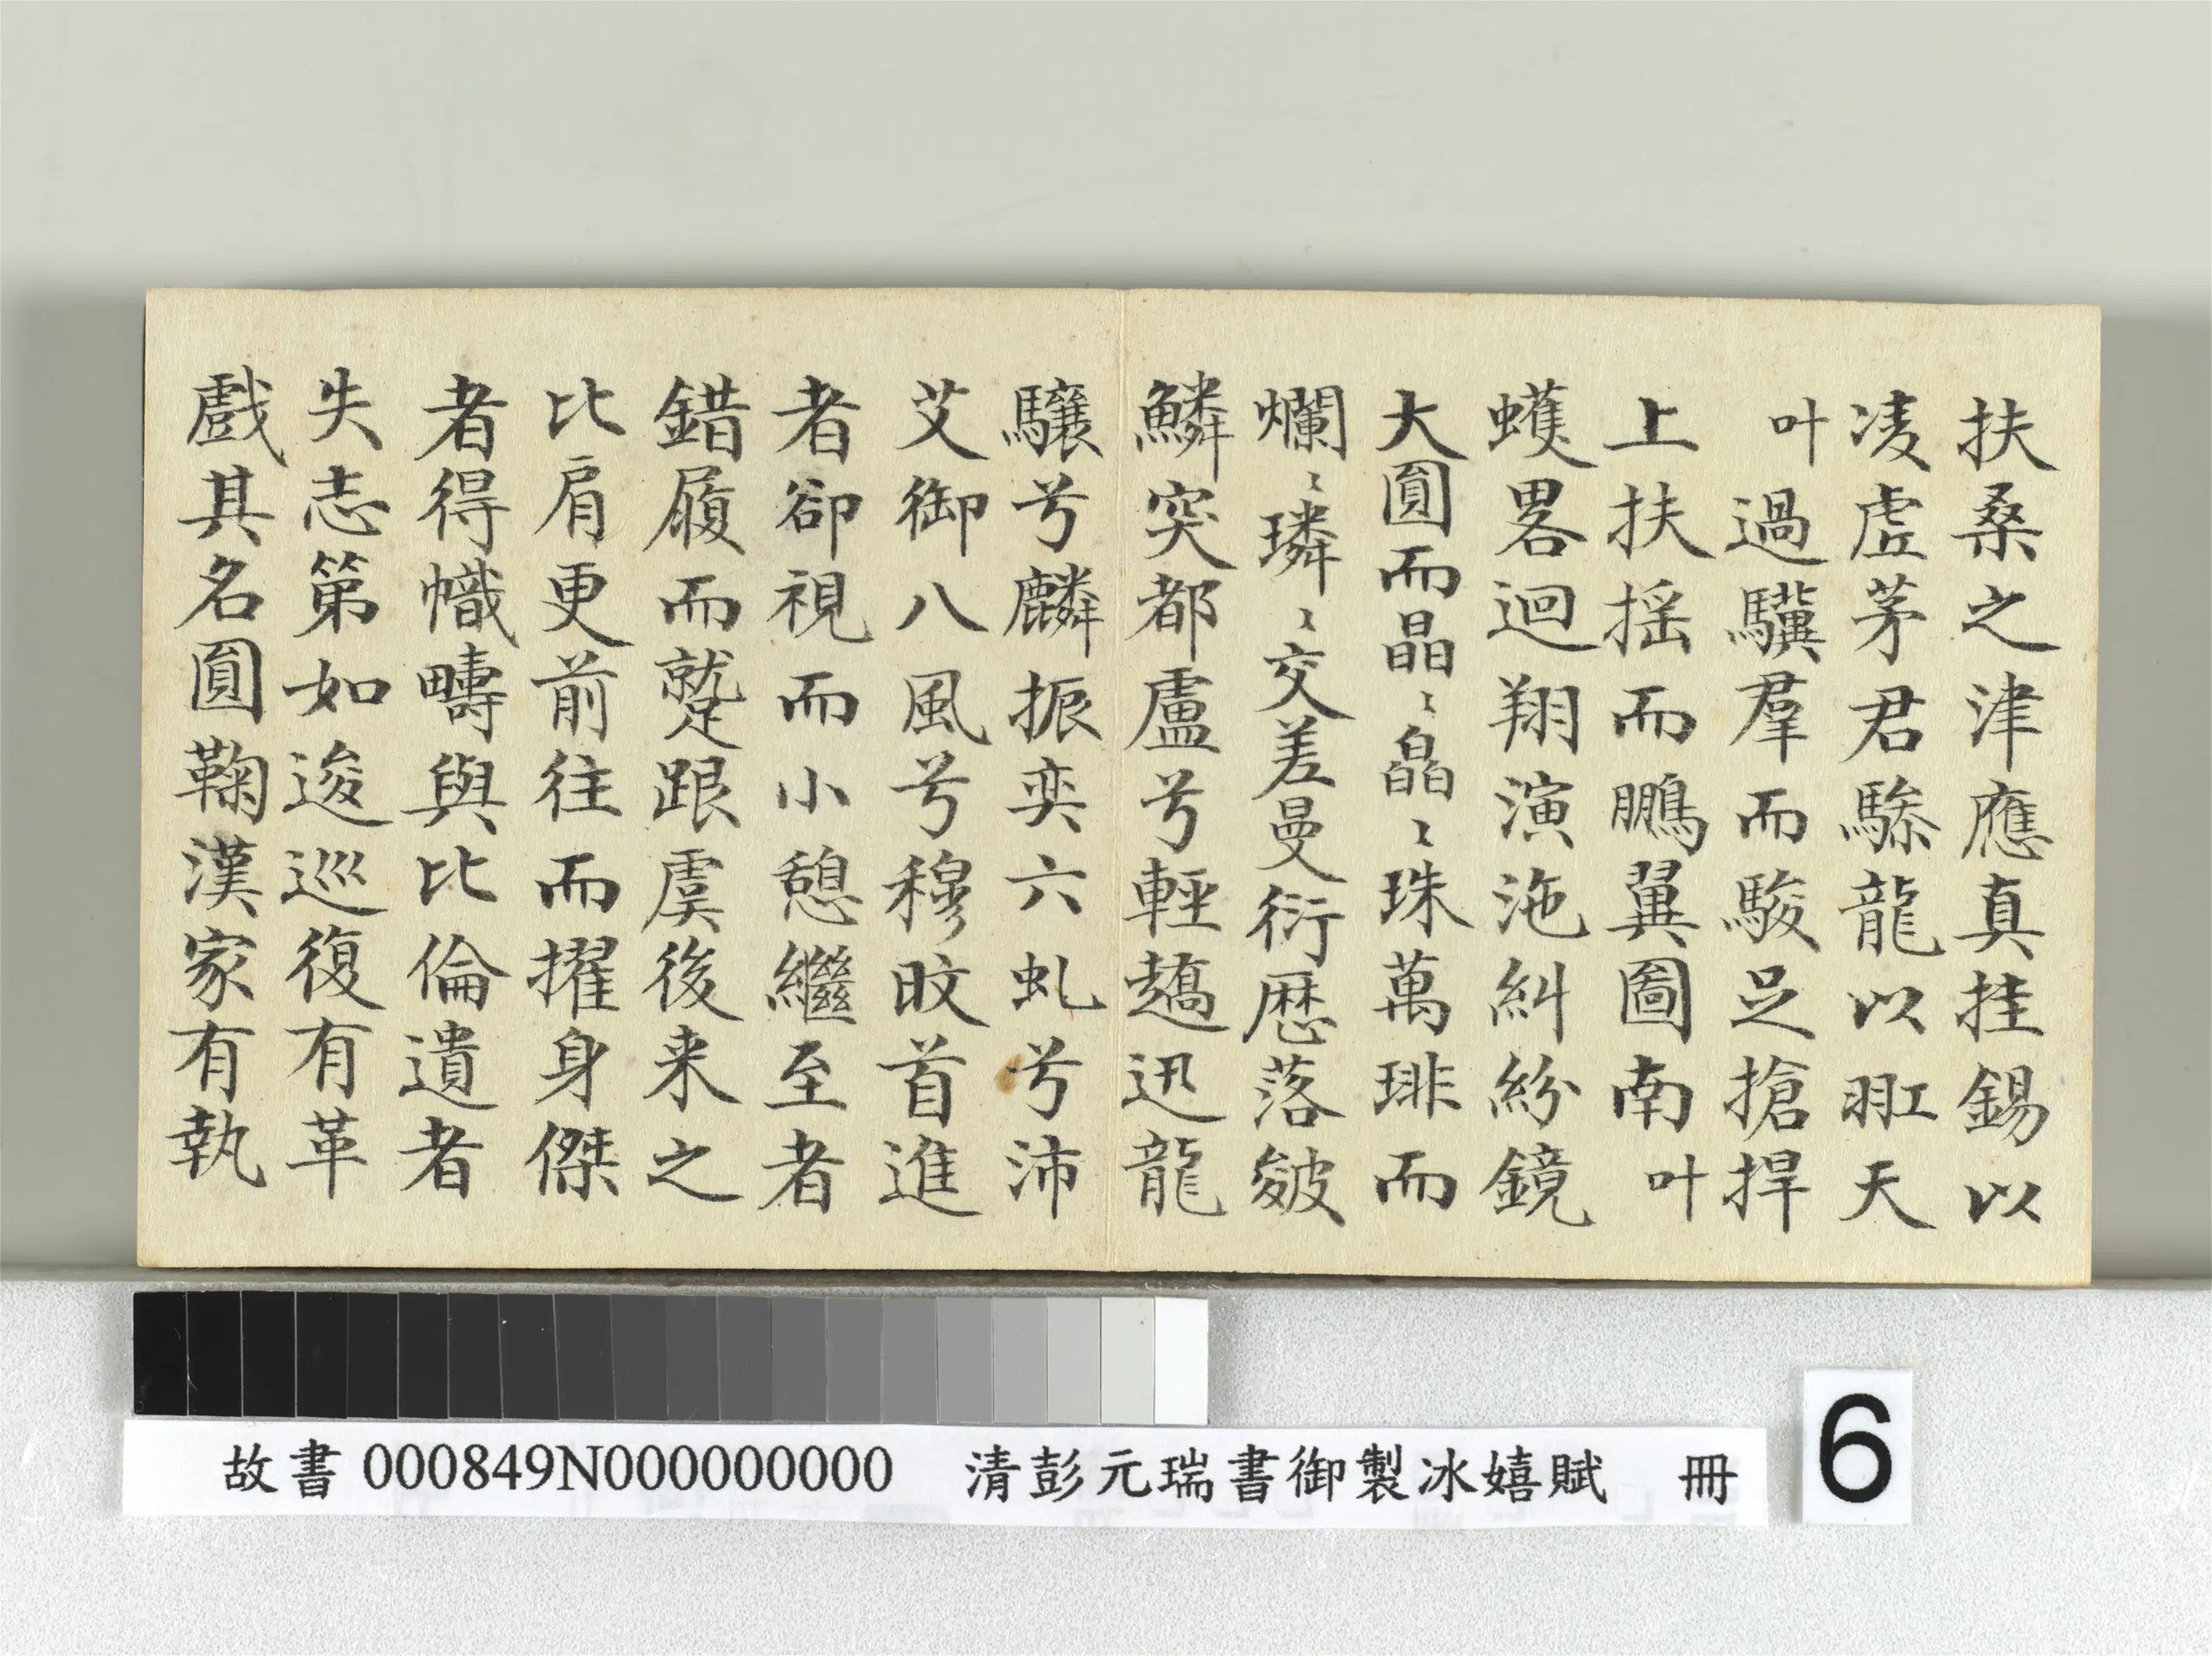 扶桑之津應真挂錫以
凌虛茅君驂龍以羾天
叶過驥羣而駿足搶捍
上扶摇而鵬翼圖南叶
蠖畧迴翔演沲糾紛鏡
大圓而晶〻皛〻珠萬琲而
爛〻璘〻交差曼衍歷落皴
鱗突都盧兮輕趫迅龍
驤兮麟振奕六虬兮沛
艾御八風兮穆旼首進
者卻視而小憩繼至者
錯履而蹵跟虞後来之
比肩更前往而擢身傑
者得幟疇與比倫遺者
失志第如逡巡復有革
戲其名圓鞠漢家有執
故書 000849N000000000 清彭元瑞書御製冰嬉賦 冊
6